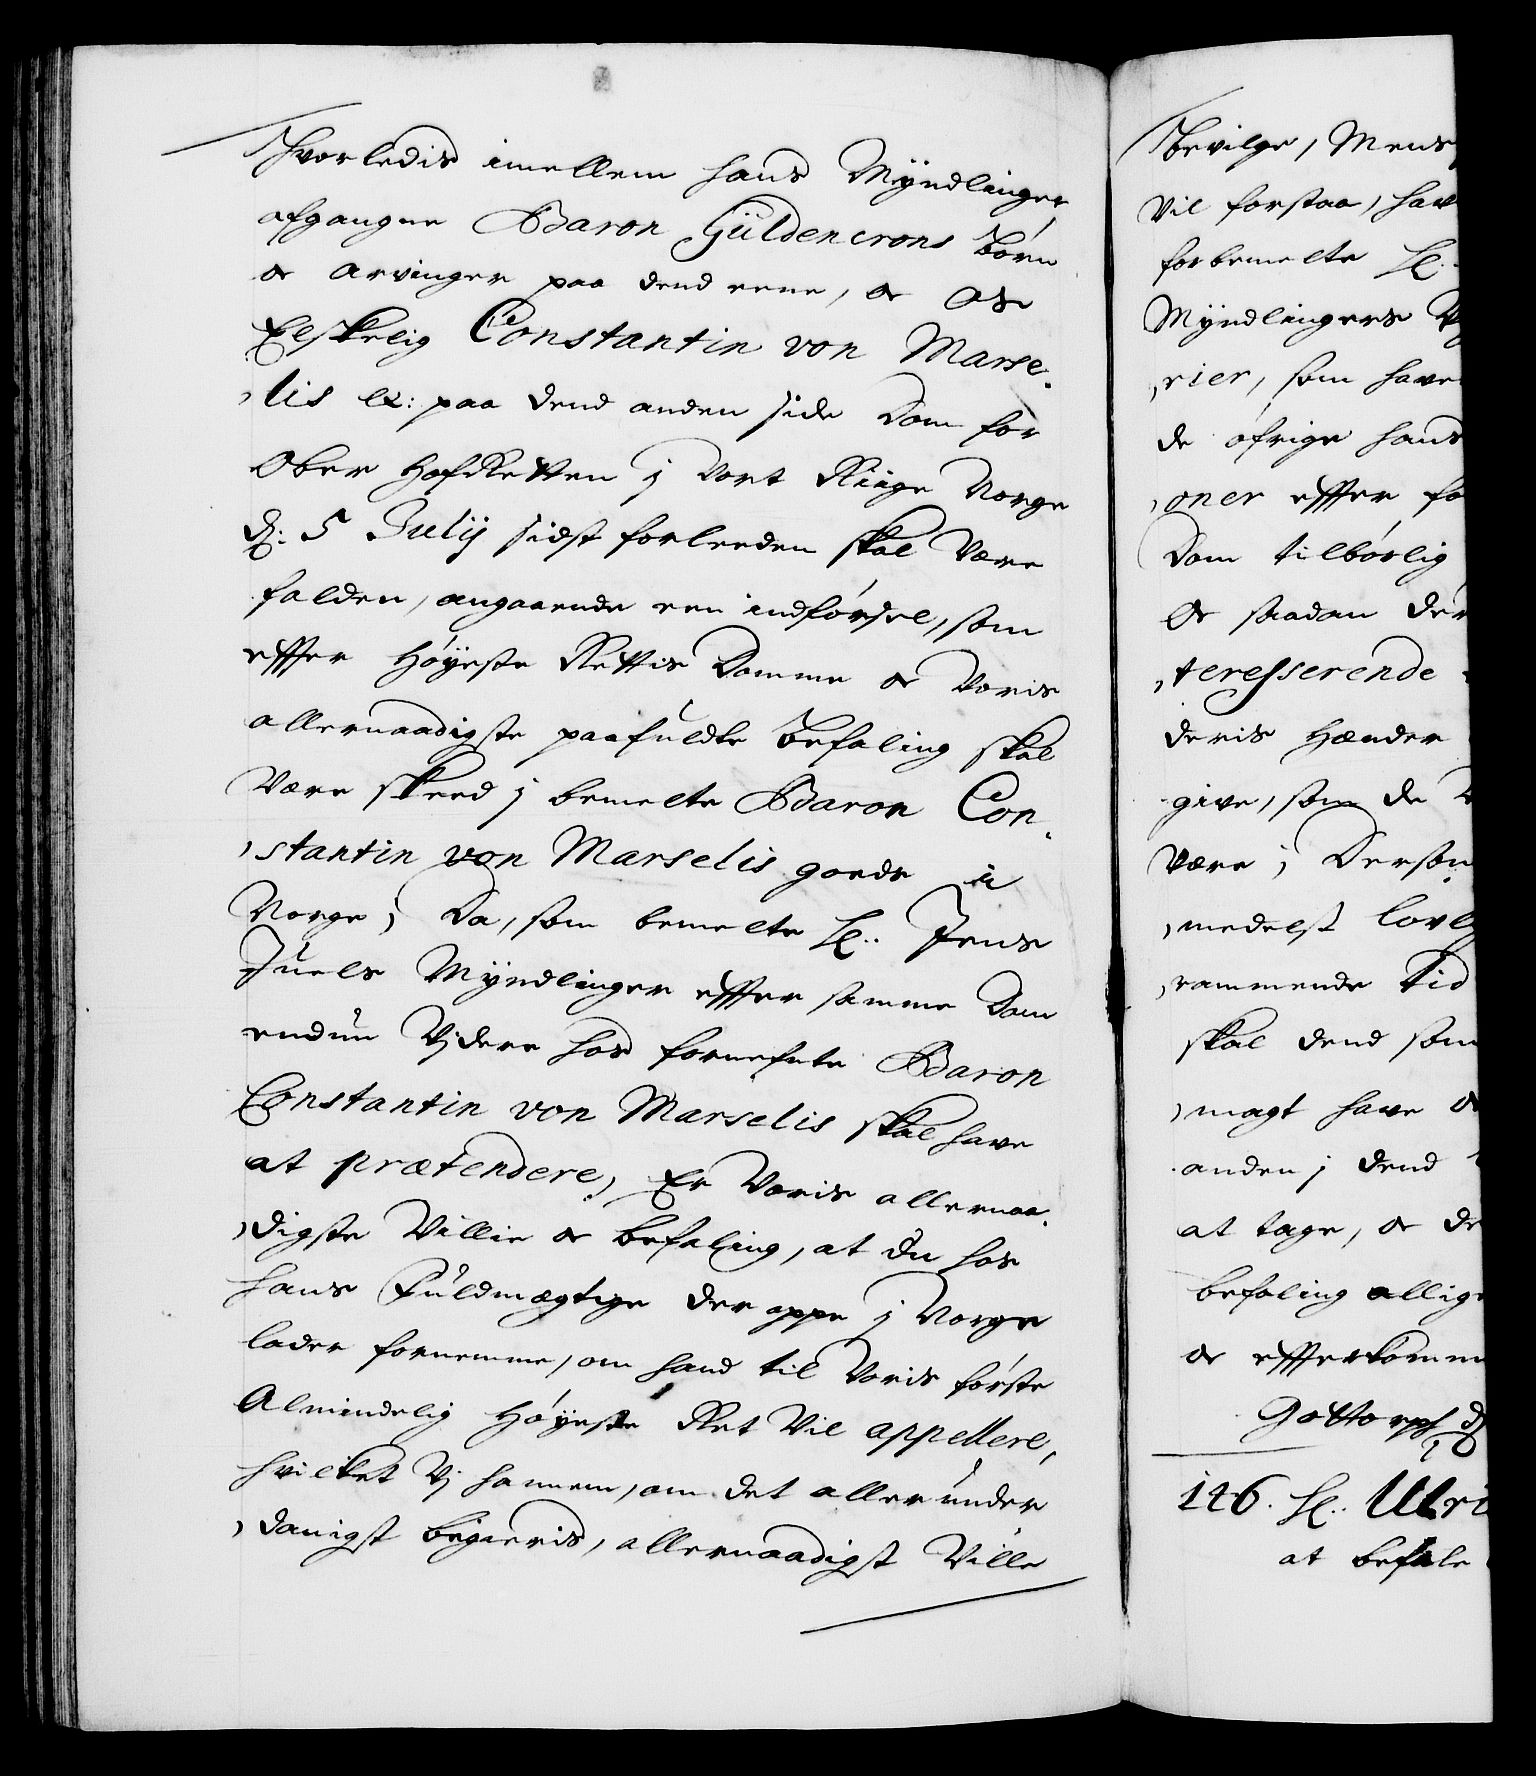 hvorledis imellem hans Myndlinger
afgangne Baron Güldencrons Børn
oc arvinger paa dend eene, oc Os
Elskelig Constantin von Marse-
lis &: paa dend anden side Dom for
Ober Hofretten j Vort Riige Norge
d: 5 Julij sidst forleeden skal være
falden, angaaende een indførsel, som
effter Høyeste Rettis Domme oc Voris
allernaadigste paafuldte befaling skal
være skeed j bemelte Baron Con-
stantin von Marselis goeds in
Norge; Da, som bemelte Hr. Jens
Juels Myndlinger effter samme Dom
endnu Vjdere hos fornefnte Baron
Constantin von Marselis skal have
at prætendere, Er Voris allernaa-
digste Villie oc befaling, at du hos
hans Fuldmægtige der oppe j Norge
lader fornemme, om hand til Voris første
Almindelig Høyeste Ret Vil appellere,
hvilket Vj hannem, om det allerunder
danigst begæris, allernaadigst Ville
bevilge, Mens
Vil forstaa, hav
forbemelte Hr.
Myndlingers
rier, som have
de øfrige hans
oner effter fo
Dom tilbørlig
Oc saadan der
teresserende
deris Hænder
give, som de
være; Derson
medelst lovl
rammende tid
skal dend som
magt have oc
anden j dend
at tage, oc de
befaling allig
oc effterkomm
Gottorph d
126. Hr. Ulri
at befale